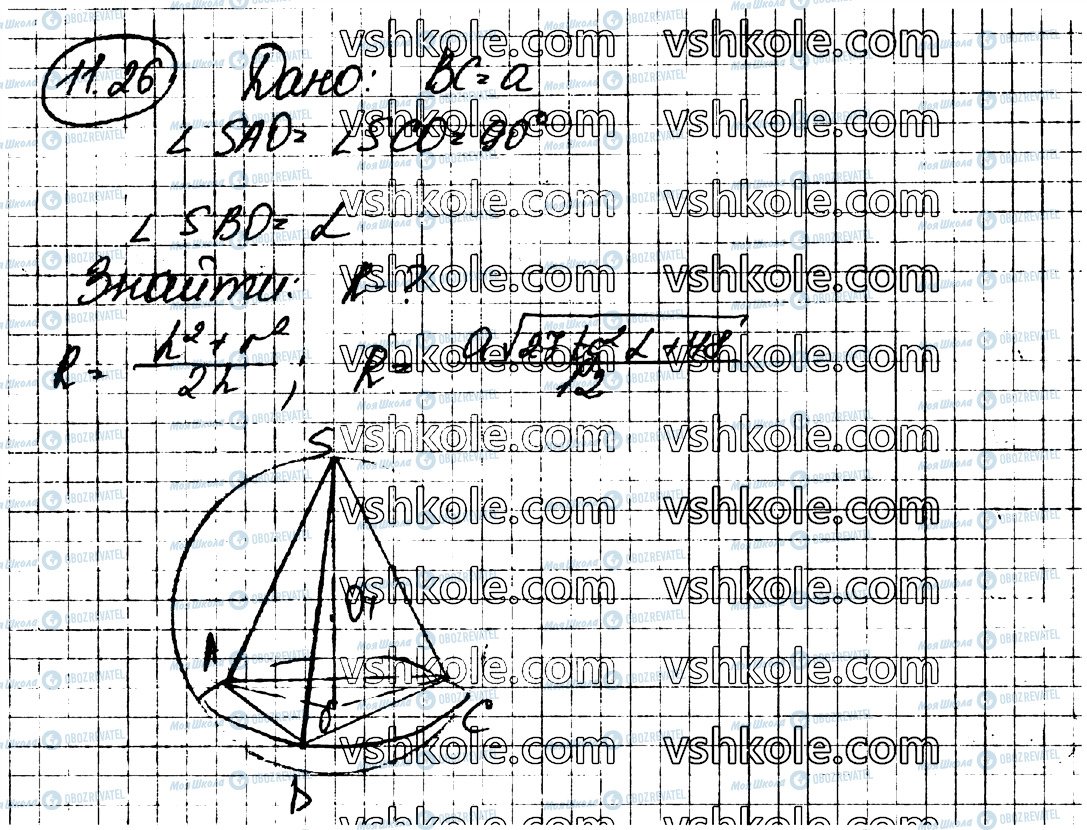 11.26 Дано: BC = a
∠ SAO = ∠ SCO = 90°
∠ SBO = α
Знайти: R - ?
R = (h² + r²) / 2h ; R = a√(27 tg² α + 48) / 12
S
O₁
A
O
C
B
vshkole.com vshkole.com
vshkole.com vshkole.com
vshkole.com vshkole.com
vshkole.com vshkole.com
vshkole.com vshkole.com
vshkole.com vshkole.com
vshkole.com vshkole.com
vshkole.com vshkole.com
vshkole.com vshkole.com
vshkole.com vshkole.com
Моя Школа OBOZREVATEL